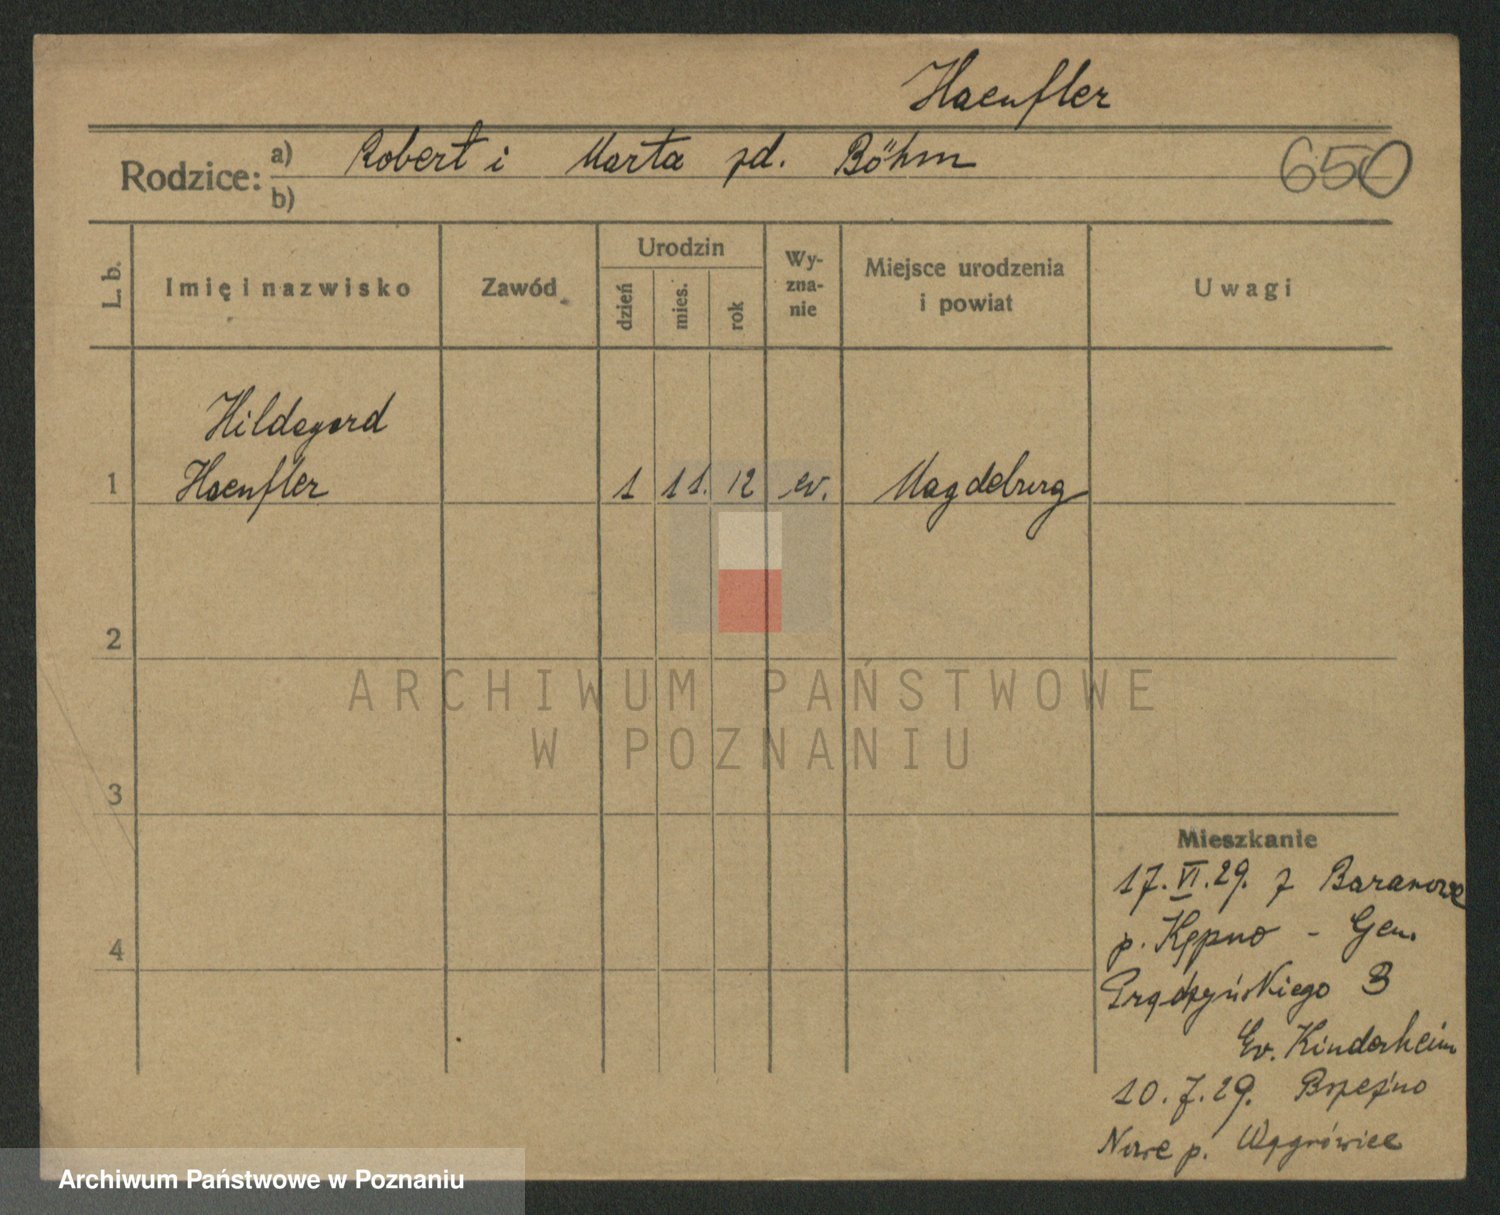 Haenfler
Rodzice: a) Robert i Marta zd. Böhm
650
b)
L. b.
Imię i nazwisko
Zawód
Urodzin
dzień
mies.
rok
Wy-
zna-
nie
Miejsce urodzenia
i powiat
Uwagi
Hildegard
1 Haenfler 1 11. 12 ev. Magdeburg
2
ARCHIWUM PAŃSTWOWE
W POZNANIU
3
Mieszkanie
17.VI.29. z Baranowa
4
p. Kępno - Gen.
Prądzyńskiego 3
Ev. Kinderheim
10.7.29. Brzeźno
Nowe p. Wągrówiec
Archiwum Państwowe w Poznaniu